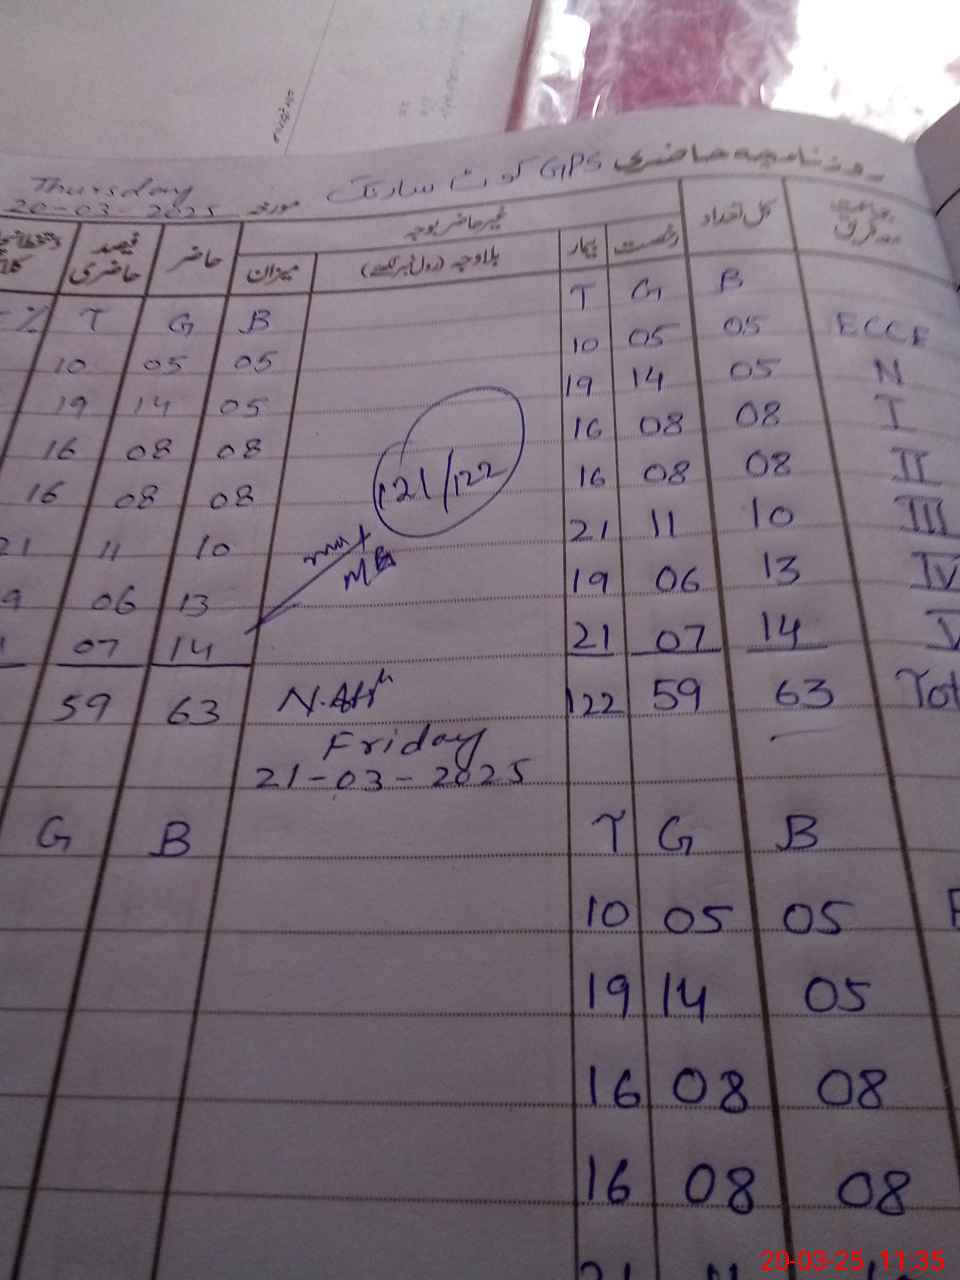 روزنامچہ حاضری GPS کوٹ سارنگ مورخہ Thursday
20-03-2025
کل تعداد غیر حاضر بوجہ حاضر فیصد حاضری
رخصت بیمار بلاوجہ (رول نمبر لکھیے) میزان
B G T B G T %
ECCE 05 05 10 05 05 10
N 05 14 19 05 14 19
I 08 08 16 08 08 16
II 08 08 16 08 08 16
III 10 11 21 10 11 21
IV 13 06 19 13 06
V 14 07 21 14 07
121/122
63 59 122 63 59
Friday
21-03-2025
B G T B G
05 05 10
05 14 19
08 08 16
08 08 16
20-03-25, 11:35